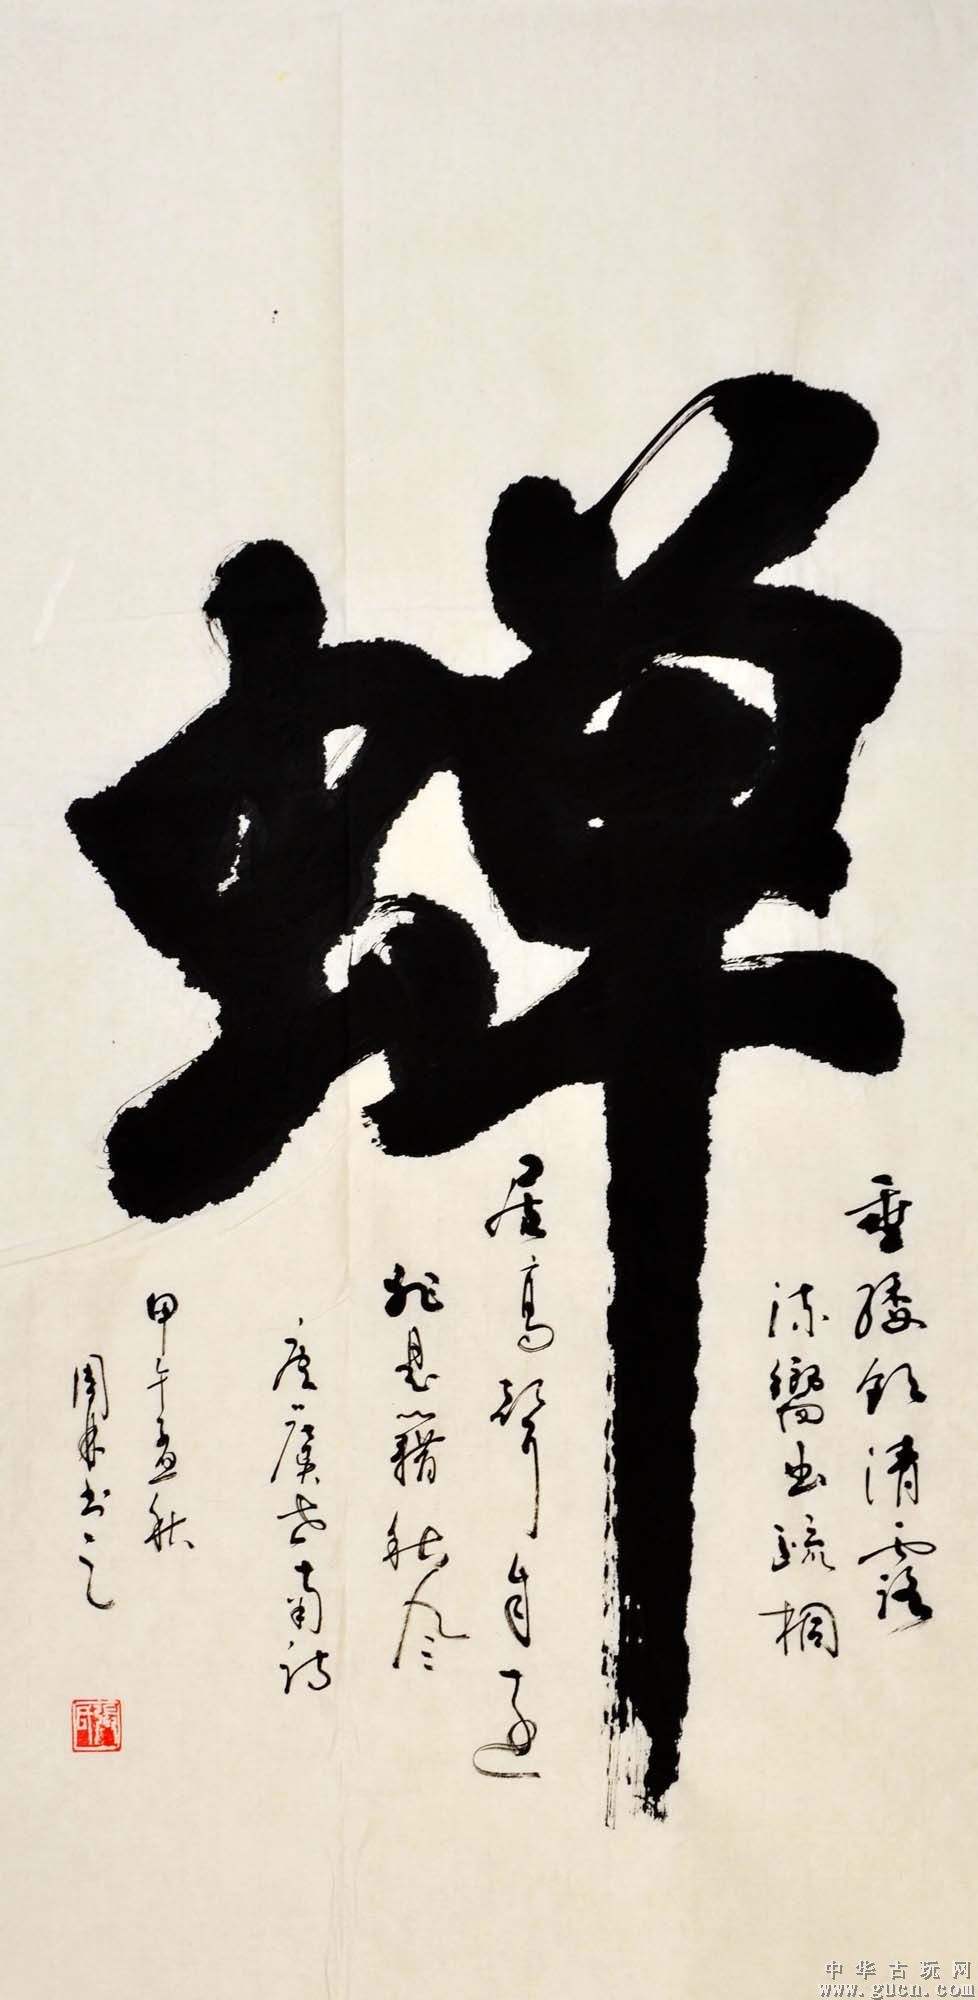 蝉
垂緌饮清露
流響出疏桐
居高声自远
非是籍秋风
唐虞世南诗
甲午孟秋
周林书之
中华古玩网
www.gucn.com